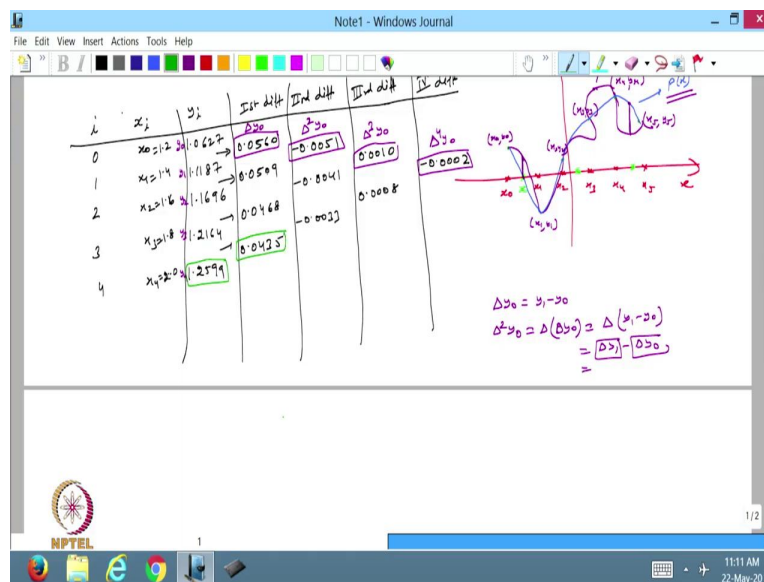 Note1 - Windows Journal
File Edit View Insert Actions Tools Help
B I
i xi yi Ist diff IInd diff IIIrd diff IV diff
Δy0 Δ²y0 Δ²y0 Δ⁴y0
0 x0=1.2 y0 1.0627 0.0560 -0.0051 0.0010 -0.0002
1 x1=1.4 y1 1.1187 0.0509 -0.0041 0.0008
2 x2=1.6 y2 1.1696 0.0468 -0.0033
3 x3=1.8 y3 1.2164 0.0435
4 x4=2.0 y4 1.2599
(x0,y0)
(x1,y1)
P(x)
x0 x1 x2 x3 x4 x5 x
Δy0 = y1-y0
Δ²y0 = Δ(Δy0) = Δ(y1-y0)
= Δy1 - Δy0,
=
NPTEL
1
1/2
11:11 AM
22-May-20